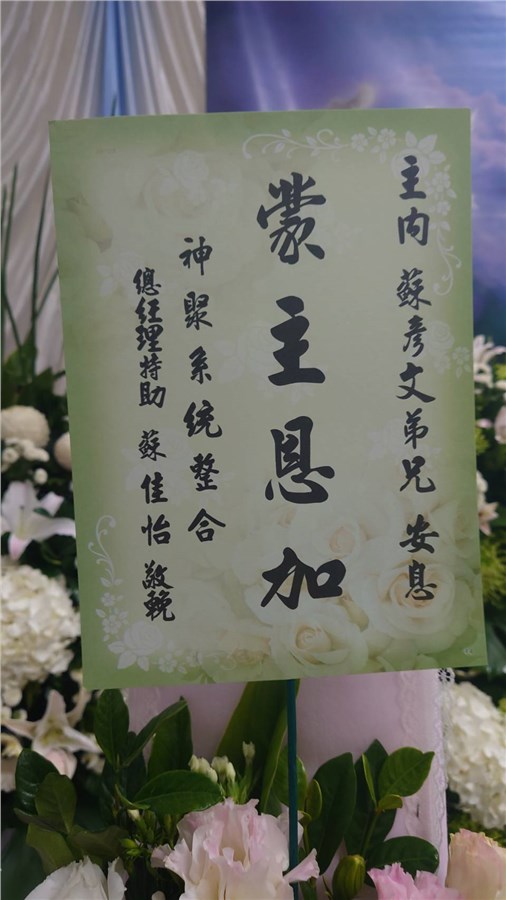 主內 蘇彥文弟兄 安息
蒙主恩加
神聚系統整合
總經理特助 蘇佳怡 敬輓